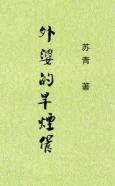 外婆的旱煙管
苏青 著